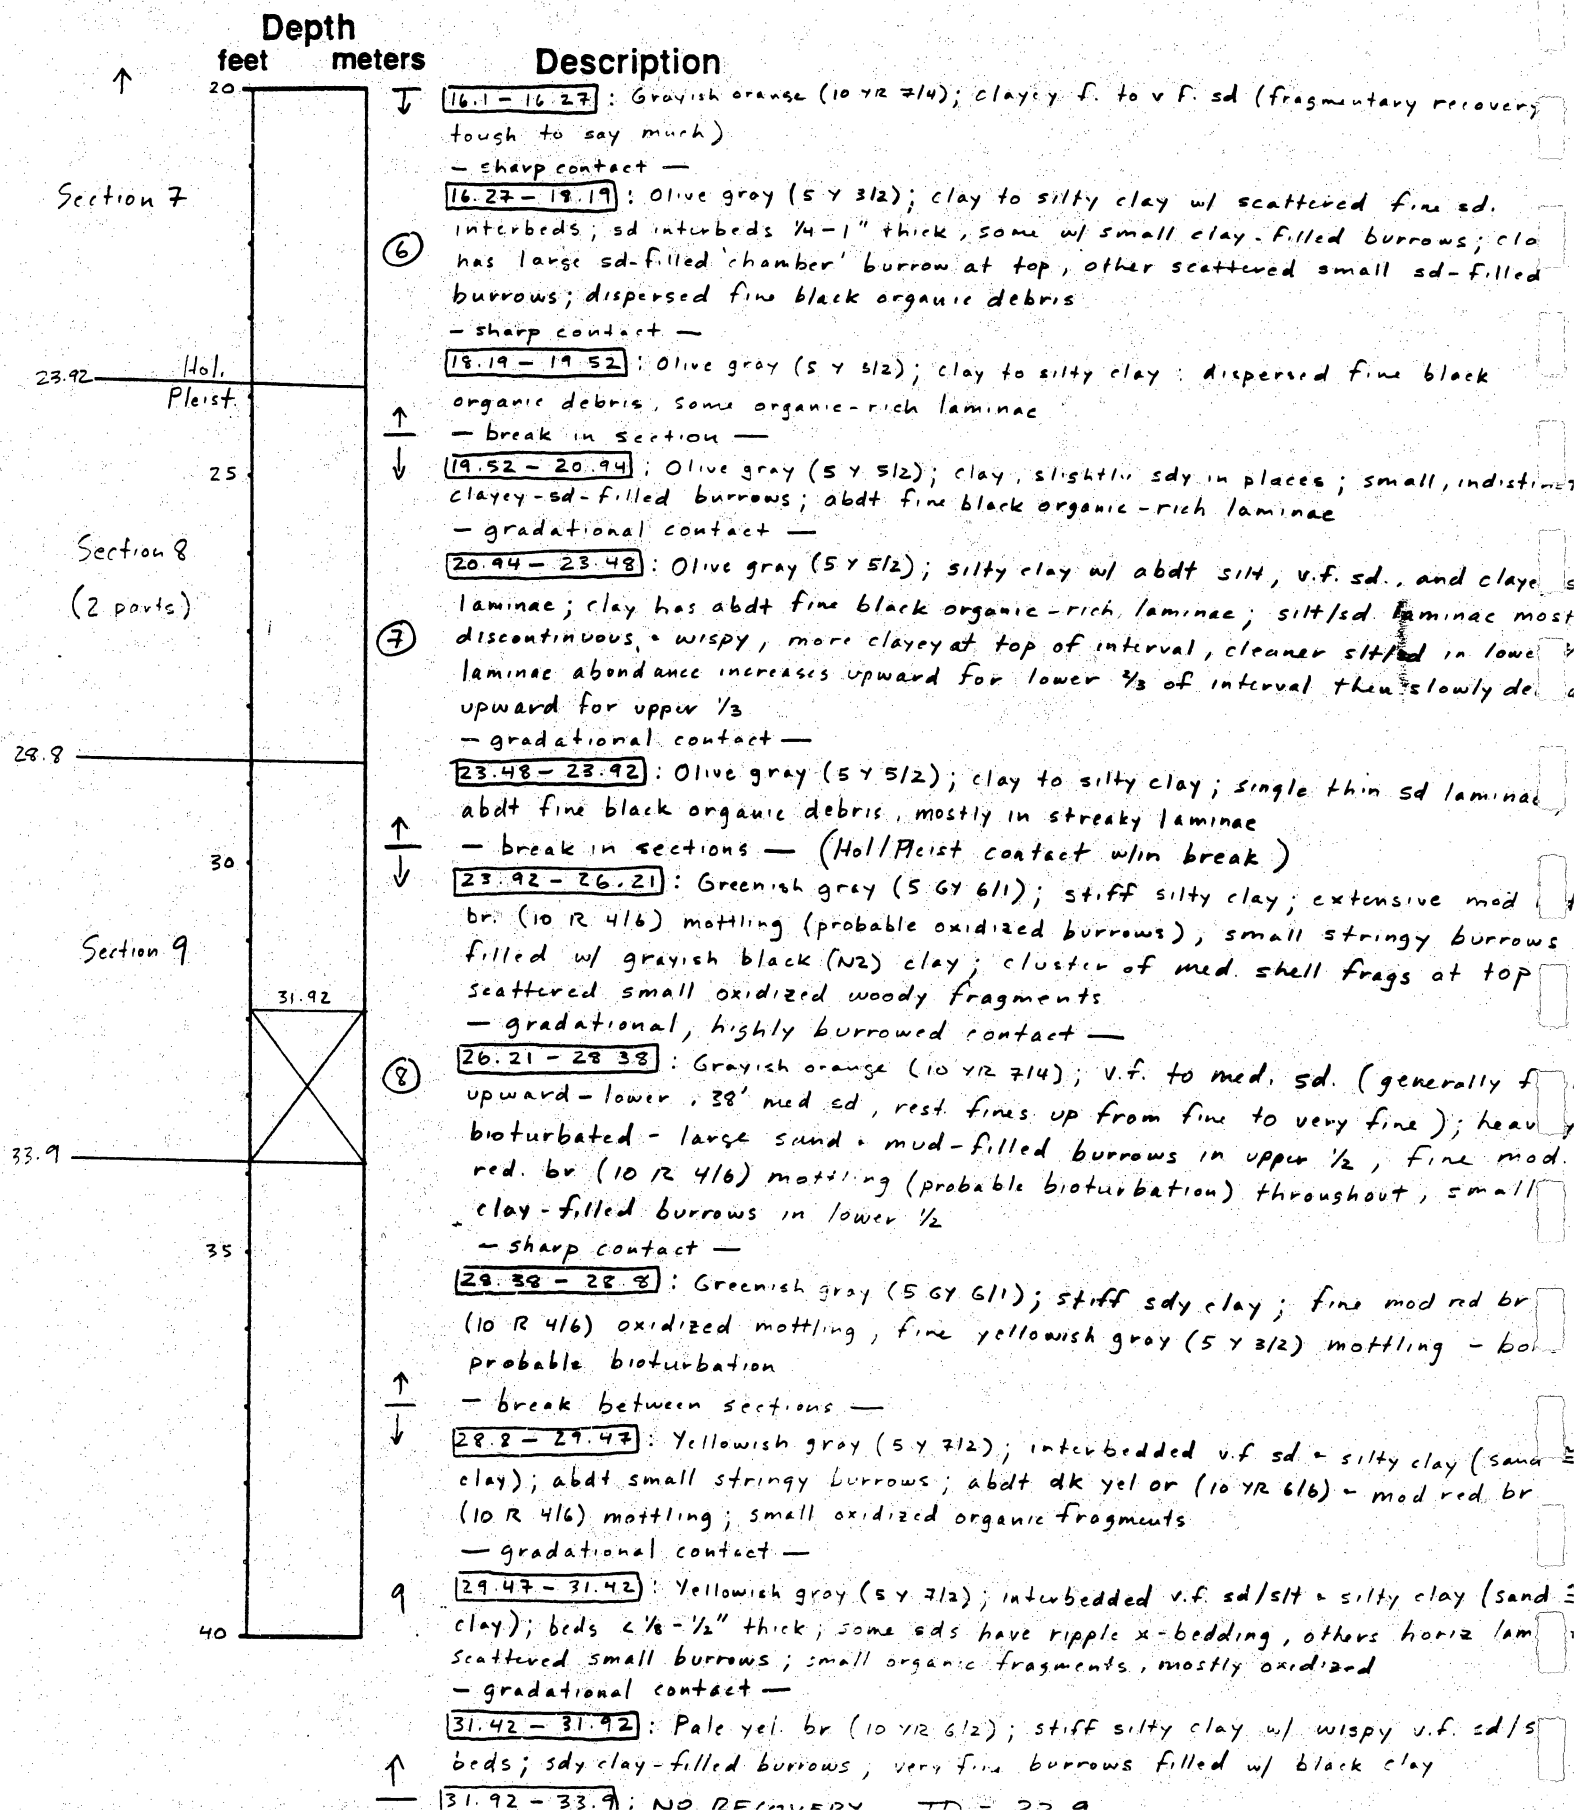 Depth
feet meters Description
↑ 20 ↓ 16.1 - 16.27 : Grayish orange (10 YR 7/4); clayey f. to v f. sd (fragmentary recovery
tough to say much)
— sharp contact —
Section 7 16.27 - 18.19 : Olive gray (5 Y 3/2); clay to silty clay w/ scattered fine sd.
interbeds; sd interbeds 1/4-1" thick, some w/ small clay-filled burrows; cla
6 has large sd-filled 'chamber' burrow at top, other scattered small sd-filled
burrows; dispersed fine black organic debris
— sharp contact —
23.92 Hol. 18.19 - 19.52 : Olive gray (5 Y 5/2); clay to silty clay: dispersed fine black
Pleist. organic debris, some organic-rich laminae
↑ — break in section —
25 ↓ 19.52 - 20.94 ; Olive gray (5 Y 5/2); clay, slightly sdy in places; small, indistinct
clayey-sd-filled burrows; abdt fine black organic-rich laminae
— gradational contact —
Section 8 20.94 - 23.48 : Olive gray (5 Y 5/2); silty clay w/ abdt silt, v.f. sd., and claye s
(2 parts) laminae; clay has abdt fine black organic-rich laminae; silt/sd laminae most
7 discontinuous + wispy, more clayey at top of interval, cleaner slt/sd in lowe
laminae abundance increases upward for lower 2/3 of interval then slowly de
upward for upper 1/3
— gradational contact —
28.8 23.48 - 23.92 : Olive gray (5 Y 5/2); clay to silty clay; single thin sd laminae
abdt fine black organic debris, mostly in streaky laminae
↑ — break in sections — (Hol/Pleist contact w/in break)
30 ↓ 23.92 - 26.21 : Greenish gray (5 GY 6/1); stiff silty clay; extensive mod
br. (10 R 4/6) mottling (probable oxidized burrows), small stringy burrows
Section 9 filled w/ grayish black (N2) clay; cluster of med. shell frags at top
31.92 scattered small oxidized woody fragments
— gradational, highly burrowed contact —
8 26.21 - 28.38 : Grayish orange (10 YR 7/4); v.f. to med. sd. (generally f
upward - lower .38' med sd, rest fines up from fine to very fine); heav y
33.9 bioturbated - large sand + mud-filled burrows in upper 1/2, fine mod.
red. br (10 R 4/6) mottling (probable bioturbation) throughout, small
clay-filled burrows in lower 1/2
35 — sharp contact —
28.38 - 28.8 : Greenish gray (5 GY 6/1); stiff sdy clay; fine mod red br
(10 R 4/6) oxidized mottling, fine yellowish gray (5 Y 3/2) mottling - bo
probable bioturbation
↑ — break between sections —
↓ 28.8 - 29.47 : Yellowish gray (5 Y 7/2); interbedded v.f sd + silty clay (sand =
clay); abdt small stringy burrows; abdt dk yel or (10 YR 6/6) + mod red br
(10 R 4/6) mottling; small oxidized organic fragments
— gradational contact —
9 29.47 - 31.42 : Yellowish gray (5 Y 7/2); interbedded v.f. sd/slt + silty clay (sand =
40 clay); beds < 1/8 - 1/2" thick; some sds have ripple x-bedding, others horiz lam
scattered small burrows; small organic fragments, mostly oxidized
— gradational contact —
31.42 - 31.92 : Pale yel. br (10 YR 6/2); stiff silty clay w/ wispy v.f. sd/s
↑ beds; sdy clay-filled burrows, very fine burrows filled w/ black clay
31.92 - 33.9 : NO RECOVERY TD = 33.9